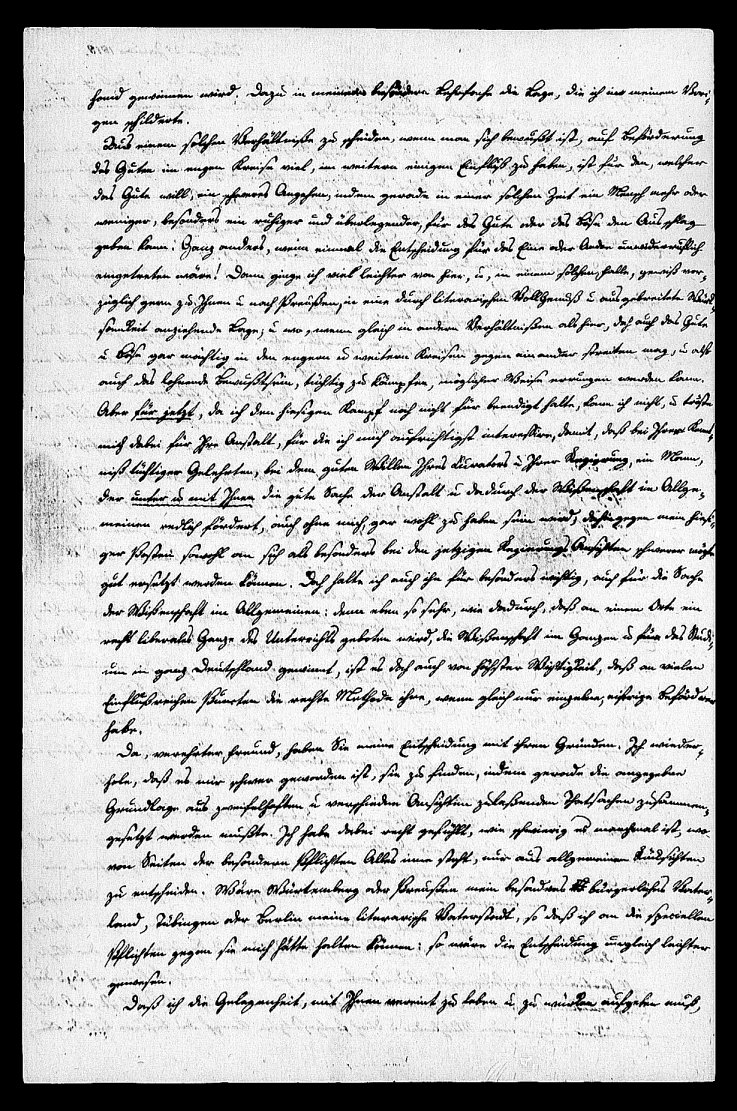 hand gewinnen wird. Dazu in meinem besondern Lehrfache die Lage, die ich in meinem Vori-
gen schilderte.
Aus einem solchen Verhältnisse zu scheiden, wenn man sich bewußt ist, auf Beförderung
des Guten im engen Kreise viel, im weitern einigen Einfluß zu haben, ist für den, welcher
das Gute will, ein schweres Angehen, indem gerade in einer solchen Zeit ein Mensch mehr oder
weniger, besonders ein ruhiger und überlegender, für das Gute oder das Böse den Ausschlag
geben kann: Ganz anders, wenn einmal die Entscheidung für das Eine oder Andre unwiderruflich
eingetreten wäre! Dann ginge ich viel leichter von hier, u, in einem solchen Falle, gewiß vor-
züglich gern zu Ihnen u nach Preußen, in eine durch literarischen Vollgenuß u ausgebreitete Wirk-
samkeit anziehende Lage, u wo, wenn gleich in andern Verhältnißen als hier, doch auch das Gute
u Böse gar mächtig in den engern u weitern Kreisen gegen einander streiten mag, u also
auch das lohnende Bewußtsein, tüchtig zu kämpfen, möglicher Weise errungen werden kann.
Aber für jetzt, da ich den hiesigen Kampf noch nicht für beendigt halte, kann ich nicht, u tröste
mich dabei für Ihre Anstalt, für die ich mich aufrichtigst interessire, damit, daß bei Ihrer Kennt-
niß tüchtiger Gelehrten, bei dem guten Willen Ihres Kurators u Ihrer Regierung, ein Mann,
der unter u mit Ihnen die gute Sache der Anstalt u dadurch der Wißenschaft im Allge-
meinen redlich fördert, auch ohne mich gar wohl zu haben sein wird, dahingegen mein hiesi-
ger Posten sowohl an sich als besonders bei den jetzigen Regierungs Ansichten schwerer
gut ersetzt werden können. Doch halte ich auch ihn für besonders wichtig, auch für die Sache
der Wißenschaft im Allgemeinen: denn eben so sehr, wie dadurch, daß an einem Orte ein
recht liberales Ganze des Unterrichts geboten wird, die Wißenschaft im Ganzen u für das Studi-
um in ganz Deutschland gewinnt, ist es doch auch von höchster Wichtigkeit, daß an vielen
Einflußreichen Puncten die rechte Methode ihre, wenn gleich nur einzelne, eifrige Beförderer
habe.
Da, verehrter Freund, haben Sie meine Entscheidung mit ihren Gründen. Ich wieder-
hole, daß es mir schwer geworden ist, sie zu finden, indem gerade die angegebne
Grundlage aus zweifelhaften u verschiedne Ansichten zulaßenden Thatsachen zusammen-
gesetzt werden mußte. Ich habe dabei recht gefühlt, wie schwierig es manchmal ist, wo
von Seiten der besondern Pflichten Alles inne steht, nur aus allgemeinen Rücksichten
zu entscheiden. Wäre Würtemberg oder Preussen mein besonderes bürgerliches Vater-
land, Tübingen oder Berlin meine literarische Vaterstadt, so daß ich an die speciellen
Pflichten gegen sie mich hätte halten können: so wäre die Entscheidung ungleich leichter
gewesen.
Daß ich die Gelegenheit, mit Ihnen vereint zu leben u zu wirken aufgeben muß,